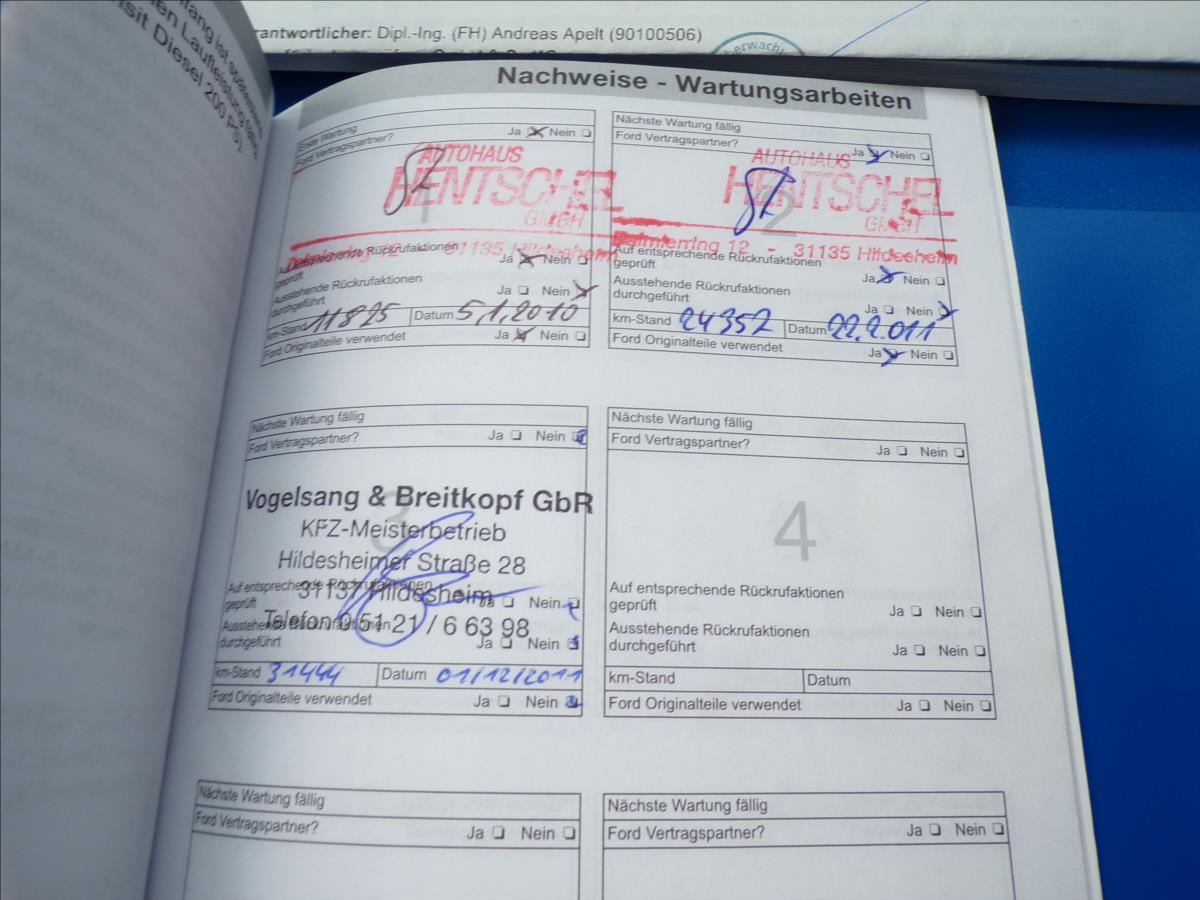 rantwortlicher: Dipl.-Ing. (FH) Andreas Apelt (90100506)
Nachweise - Wartungsarbeiten
Erste Wartung
Ford Vertragspartner? Ja Nein
AUTOHAUS
HENTSCHEL
GMBH
31135 Hildesheim
Auf entsprechende Rückrufaktionen
geprüft Ja Nein
Ausstehende Rückrufaktionen
durchgeführt Ja Nein
km-Stand 11825 Datum 5,1,2010
Ford Originalteile verwendet Ja Nein
Nächste Wartung fällig
Ford Vertragspartner? Ja Nein
AUTOHAUS
HENTSCHEL
GMBH
2
Daimlerring 12 - 31135 Hildesheim
Auf entsprechende Rückrufaktionen
geprüft Ja Nein
Ausstehende Rückrufaktionen
durchgeführt Ja Nein
km-Stand 24352 Datum 22.2.011
Ford Originalteile verwendet Ja Nein
Nächste Wartung fällig
Ford Vertragspartner? Ja Nein
3
Vogelsang & Breitkopf GbR
KFZ-Meisterbetrieb
Hildesheimer Straße 28
31137 Hildesheim
Telefon 0 51 21 / 6 63 98
Auf entsprechende Rückrufaktionen
geprüft Ja Nein
Ausstehende Rückrufaktionen
durchgeführt Ja Nein
km-Stand 31444 Datum 01/12/2011
Ford Originalteile verwendet Ja Nein
Nächste Wartung fällig
Ford Vertragspartner? Ja Nein
4
Auf entsprechende Rückrufaktionen
geprüft Ja Nein
Ausstehende Rückrufaktionen
durchgeführt Ja Nein
km-Stand Datum
Ford Originalteile verwendet Ja Nein
Nächste Wartung fällig
Ford Vertragspartner? Ja Nein
Nächste Wartung fällig
Ford Vertragspartner? Ja Nein